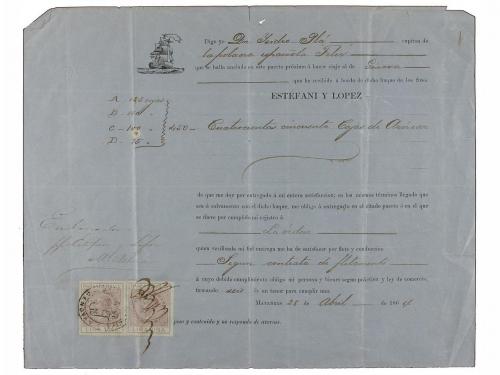 Digo yo Don Isidro Plá capitan de
la polacra española Feliz
que se halla anclado en este puerto próximo á hacer viaje al de Genova
que he recibido á bordo de dicho buque de los Sres.
ESTEFANI Y LOPEZ
A 125 cajas
B
C 100
D 75
450 Cuatrocientas cincuenta Cajas de Azúcar
de que me doy por entregado á mi entera satisfaccion; en los mismos términos llegado que
sea á salvamento con el dicho buque, me obligo á entregarlo en el citado puerto ó en el que
se diere por cumplido mi registro á
La orden
quien verificada mi fiel entrega me ha de satisfacer por flete y conduccion
Segun contrato de fletamento
á cuyo debido cumplimiento obligo mi persona y bienes segun práctica y ley de comercio,
firmando seis de un tenor para cumplir uno.
MATANZAS 28 de Abril de 186
peso y contenido y no respondo de averias.